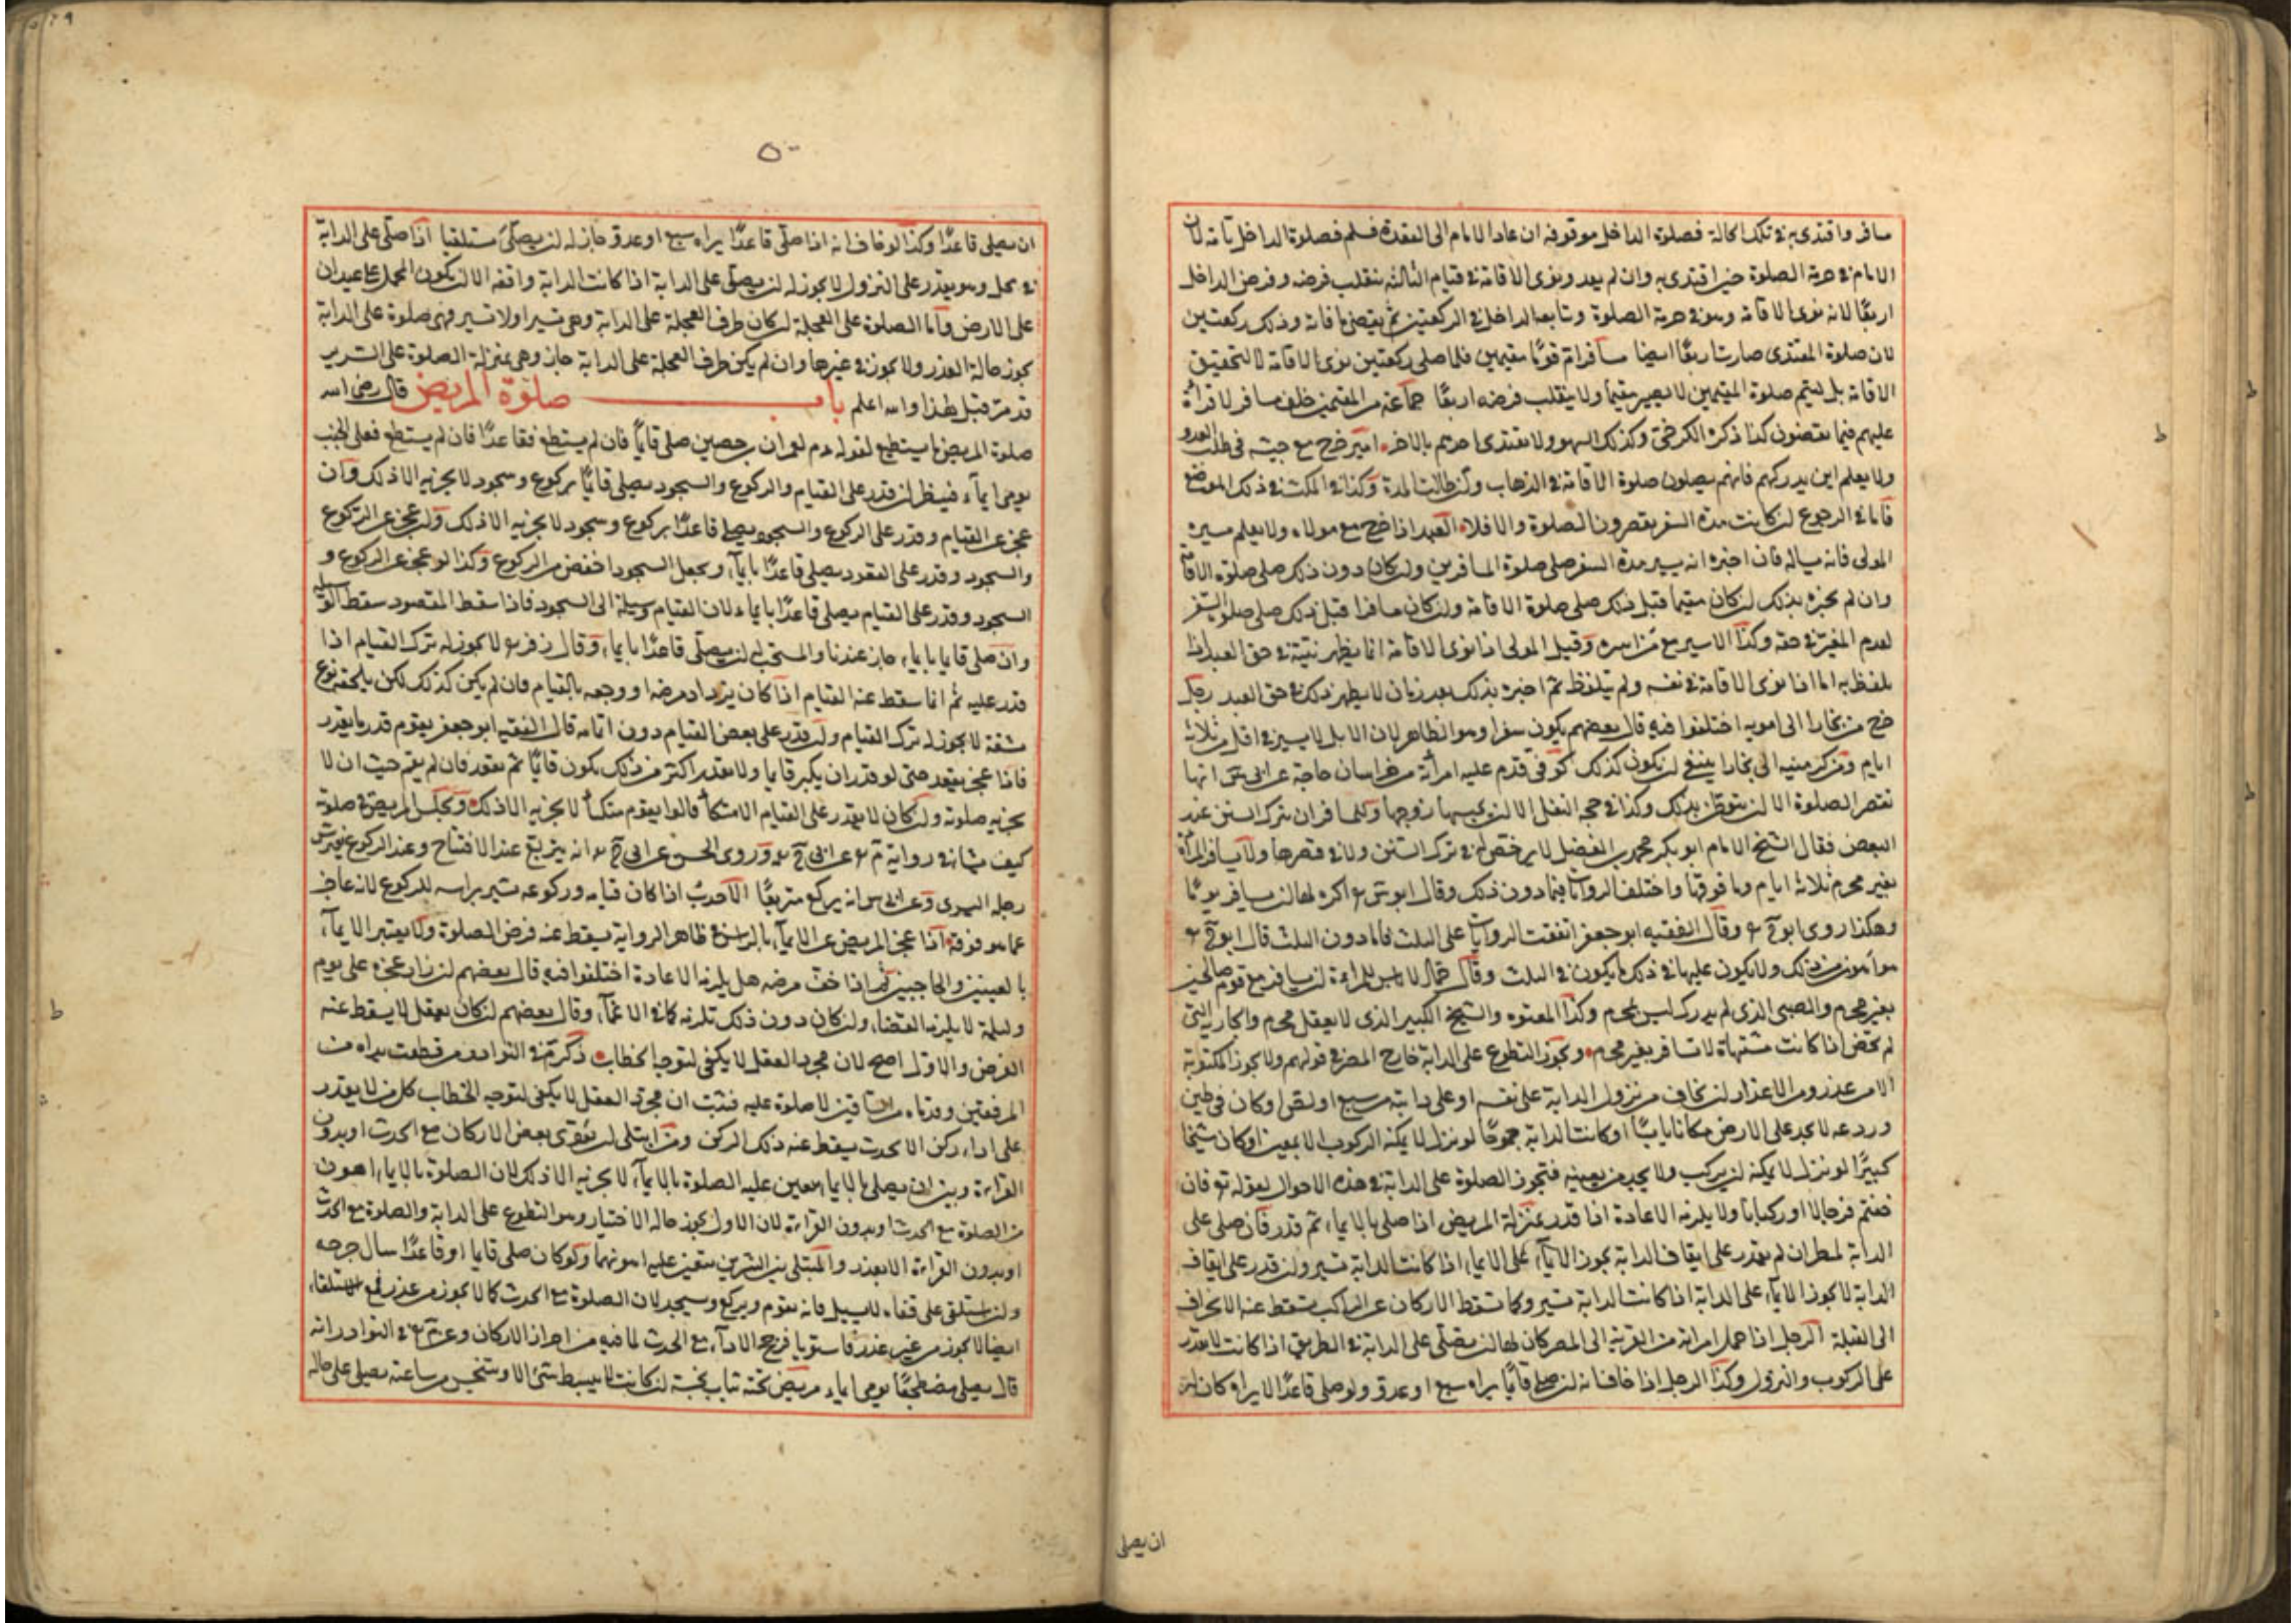 مسافر واقتدى به في تلك الحالة فصلوة الداخل موقوفة ان عاد الامام الى القعدة فسلم فصلوة الداخل تامة لان
الامام في حرمة الصلوة حين اقتدى به وان لم يعد ونوى الاقامة في قيام الثالثة ينقلب فرضه وفرض الداخل
اربعًا لانه نوى الاقامة وهو في حرمة الصلوة وتابعه الداخل في الركعتين ثم يقضي ما فاته وذلك ركعتين
لان صلوة المقتدى صارت اربعًا ايضا مسافر ام قومًا مقيمين فلما صلى ركعتين نوى الاقامة لا لتحقيق
الاقامة بل ليتم صلوة المقيمين لا يصير مقيما ولا ينقلب فرضه اربعًا جماعة من المقيمين خلف مسافر لا قرأة
عليهم فيما يقضون كذا ذكره الكرخي وكذلك السهو ولا يقتدى احدهم بالاخر امير خرج مع جيشه في طلب العدو
ولا يعلم اين يدركهم فانهم يصلون صلوة الاقامة في الذهاب وان طالت المدة وكذا في المكث في ذلك الموضع
فاما في الرجوع ان كانت مدة السفر يقصرون الصلوة والا فلا العبد اذا خرج مع مولاه ولا يعلم مسيره
المولى فانه يساله فان اخبره انه يسير مدة السفر صلى صلوة المسافرين وان كان دون ذلك صلى صلوة الاقامة
وان لم يخبره بذلك ان كان مقيما قبل ذلك صلى صلوة الاقامة وان كان مسافرا قبل ذلك صلى صلوة السفر
لعدم المغير في حقه وكذا الاسير مع من اسره وقيل المولى اذا نوى الاقامة انما يظهر نيته في حق العبد اذا
تلفظ به اما اذا نوى الاقامة في نفسه ولم يتلفظ ثم اخبره بذلك بعد زمان لا يظهر ذلك في حق العبد رجل
خرج من بخارا الى امويه اختلفوا فيه قال بعضهم يكون سفرا وهو الظاهر لان الابل لا يسير في اقل من ثلاثة
ايام ومن كرمينيه الى بخارا ينبغي ان يكون كذلك كوفي قدم عليه امرأة من خراسان حاجة عن ابي س انها
تقصر الصلوة الا ان يتوطن بذلك وكذا في حجة النفل الا ان يحبسها زوجها وللمسافر ان يترك السنن عند
البعض فقال الشيخ الامام ابو بكر محمد بن الفضل لا يرخص له في ترك السنن ولا في قصرها ولا يسافر المرأة
بغير محرم ثلاثة ايام وما فوقها واختلف الروايات فيما دون ذلك وقال ابو س اكره لها ان يسافر يومًا
وهكذا روى ابو ح وقال الفقيه ابو جعفر اتفقت الروايات على الثلث فاما دون الثلث قال ابو ح
هو اهون من ذلك ولا يكون عليها في ذلك ما يكون في الثلث وقال حماد لا باس للمراءة ان يسافر مع قوم صالحين
بغير محرم والصبي الذي لم يدرك ليس بمحرم وكذا المعتوه والشيخ الكبير الذي لا يعقل محرم والجارية التي
لم تحض اذا كانت مشتهاة لا تسافر بغير محرم ويجوز التطوع على الدابة خارج المصر في قولهم ولا يجوز المكتوبة
الا من عذر ومن الاعذار ان يخاف من نزول الدابة على نفسه او على دابته من سبع او لص او كان في طين
وردعه لا يجد على الارض مكانا يابسًا او كانت الدابة جموحًا لو نزل لا يمكنه الركوب الا بمعين او كان شيخا
كبيرًا لو نزل لا يمكنه ان يركب ولا يجد من يعينه فتجوز الصلوة على الدابة في هذه الاحوال لقوله تع فان
خفتم فرجالا او ركبانا ولا يلزمه الاعادة اذا قدر بمنزلة المريض اذا صلى بالايماء ثم قدر فان صلى على
الدابة لمطر ان لم يقدر على ايقاف الدابة يجوز الايماء على الايماء اذا كانت الدابة تسير وان قدر على ايقاف
الدابة لا يجوز الايماء على الدابة اذا كانت الدابة تسير وكما تسقط الاركان عن الراكب تسقط عنه الانحراف
الى القبلة الرجل اذا حمل امراته من القرية الى المصر كان لها ان تصلى على الدابة في الطريق اذا كانت لا تقدر
على الركوب والنزول وكذا الرجل اذا خاف انه ان صلى قائمًا يراه سبع او عدو ولو صلى قاعدًا لا يراه كان له
ان يصلى
٥٠
ان يصلى قاعدًا وكذا لو خاف انه اذا صلى قاعدًا يراه سبع او عدو جاز له ان يصلى مستلقيا اذا صلى على الدابة
في محمل وهو يقدر على النزول لا يجوز له ان يصلى على الدابة اذا كانت الدابة واقفة الا ان يكون المحمل على عيدان
على الارض واما الصلوة على العجلة ان كان طرف العجلة على الدابة وهي تسير او لا تسير فهي صلوة على الدابة
يجوز حالة العذر ولا يجوز في غيرها وان لم يكن طرف العجلة على الدابة جاز وهي بمنزلة الصلوة على السرير
قد مر قبل هذا والله اعلم باب صلوة المريض قال رضى الله
صلوة المريض ما يستطيع لقوله عم لعمران بن حصين صلى قائمًا فان لم يستطع فقاعدًا فان لم يستطع فعلى الجنب
يومى ايماء فينظر ان قدر على القيام والركوع والسجود يصلى قائمًا بركوع وسجود لا يجزيه الا ذلك وان
عجز عن القيام وقدر على الركوع والسجود يصلى قاعدًا بركوع وسجود لا يجزيه الا ذلك وان عجز عن الركوع
والسجود وقدر على القعود يصلى قاعدًا بايماء ويجعل السجود اخفض من الركوع وكذا لو عجز عن الركوع و
السجود وقدر على القيام يصلى قاعدًا بايماء لان القيام وسيلة الى السجود فاذا سقط المقصود سقط الوسيلة
وان صلى قائما بايماء جاز عندنا والمستحب ان يصلى قاعدًا بايماء وقال زفر لا يجوز له ترك القيام اذا
قدر عليه ثم انما سقط عنه القيام اذا كان يزداد مرضه او وجعه بالقيام فان لم يكن كذلك لكن يلحقه نوع
مشقة لا يجوز له ترك القيام وان قدر على بعض القيام دون اتمامه قال الفقيه ابو جعفر يقوم قدر ما يقدر
فاذا عجز يقعد حتى لو قدر ان يكبر قائما ولا يقدر اكثر من ذلك يكون قائمًا ثم يقعد فان لم يقم حيث ان لا
يجزيه صلوته وان كان لا يقدر على القيام الا متكأ قالوا يقوم متكأ لا يجزيه الا ذلك ويجلس المريض في صلوته
كيف شاء في رواية م عن ابي ح وروى الحسن عن ابي ح انه يتربع عند الافتتاح وعند الركوع يفترش
رجله اليسرى وعن ابي س انه يركع متربعًا الاحدب اذا كان قيامه وركوعه يشير براسه للركوع لانه عاجز
عما هو فوقه اذا عجز المريض عن الايماء بالراس في ظاهر الرواية يسقط عنه فرض الصلوة ولا يعتبر الايماء
بالعينين والحاجبين ثم اذا خف مرضه هل يلزمه الاعادة اختلفوا فيه قال بعضهم ان زاد عجزه على يوم
وليلة لا يلزمه القضاء وان كان دون ذلك تلزمه كما في الاغماء وقال بعضهم ان كان يعقل لا يسقط عنه
الفرض والاول اصح لان مجرد العقل لا يكفى لتوجه الخطاب ذكر م في النوادر من قطعت يداه من
المرفقين وقدماه من الساقين لا صلوة عليه فثبت ان مجرد العقل لا يكفى لتوجه الخطاب كل من لا يقدر
على اداء ركن الا بحدث يسقط عنه ذلك الركن ومن ابتلى ان يؤدى بعض الاركان مع الحدث او بدون
القراءة وبين ان يصلى بالايماء تعين عليه الصلوة بالايماء لا يجزيه الا ذلك لان الصلوة بالايماء اهون
من الصلوة مع الحدث او بدون القراءة لان الاول يجوز حالة الاختيار وهو التطوع على الدابة والصلوة مع الحدث
او بدون القراءة الا بعذر والمبتلى بين الشرين يتعين عليه اهونهما ولو كان صلى قائما او قاعدًا سال جرحه
وان استلقى على قفاه لا يسيل فانه يقوم ويركع ويسجد لان الصلوة مع الحدث كما لا يجوز من عذر فمع الاستلقاء
ايضا لا يجوز من غير عذر فاستويا فرجح الاداء مع الحدث لما فيه من احراز الاركان وعن م في النوادر انه
قال يصلى مضطجعًا يومى ايماء مريض تحته ثياب نجسة ان كانت لا يبسط شئ الا ويتنجس من ساعته يصلى على حاله